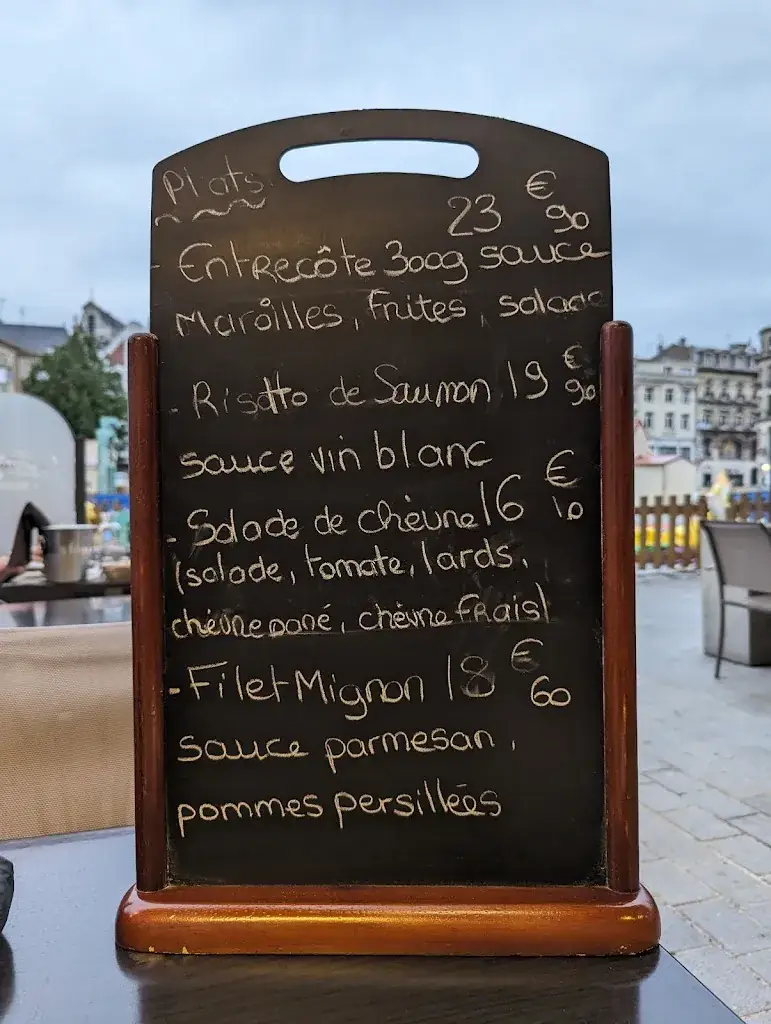 Plats
23 € 90
- Entrecôte 300g sauce
Maroilles, frites, salade
- Risotto de Saumon 19 € 90
sauce vin blanc
- Salade de chèvre 16 € 10
(salade, tomate, lards,
chèvre pané, chèvre frais)
- Filet Mignon 18 € 60
sauce parmesan,
pommes persillées